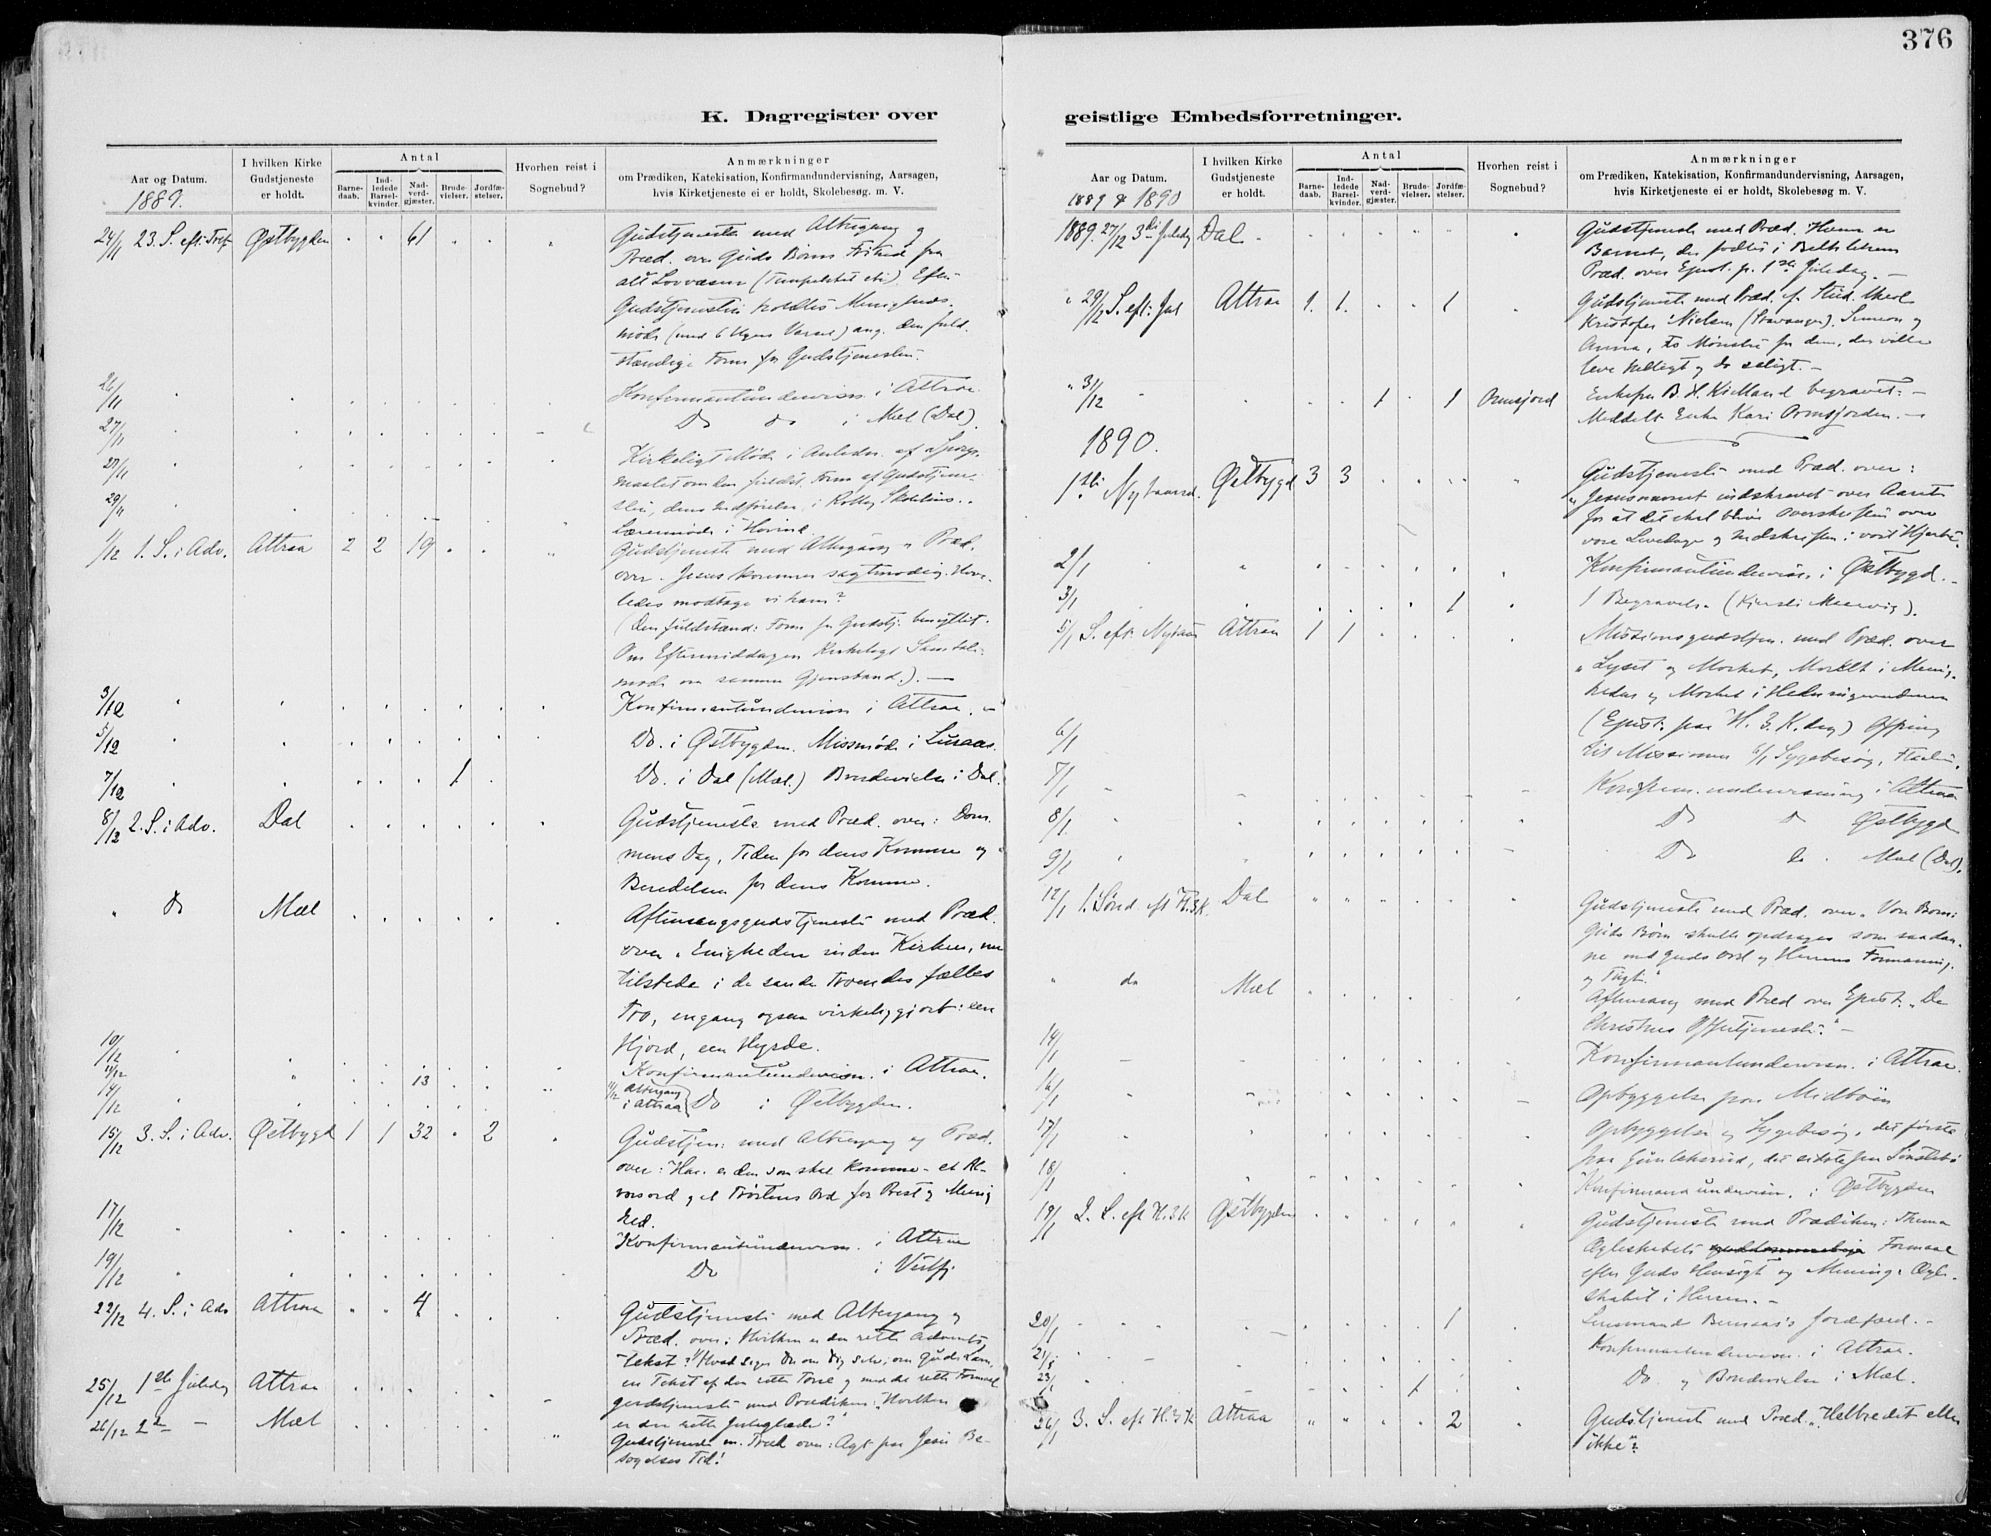 376
K. Dagregister over
geistlige Embedsforretninger.
Aar og Datum.
1889.
I hvilken Kirke
Gudstjeneste
er holdt.
Antal
Barne-
daab.
Ind-
ledede
Barsel-
kvinder.
Nad-
verd-
gjæster.
Brude-
vielser.
Jordfæ-
stelser.
Hvorhen reist i
Sognebud?
Anmærkninger
om Prædiken, Katekisation, Konfirmandundervisning, Aarsagen,
hvis Kirketjeneste ei er holdt, Skolebesøg m. V.
24/11 23. S. eft: Tref. Østbygden 61 Gudstjeneste med Altergang og
Præd. over Guds Børns Frihed fra
alt Lovvæsen (Tempelskat etc). Efter
Gudstjenesten holdtes Menigheds-
møde (med 6 Ugers Varsel) ang. den fuld-
stændige Form for Gudstjenesten.
26/11 Konfirmantundervisn. i Attraa.
27/11 Do do i Mæl (Dal).
27/11 Kirkeligt Møde i Anledn. af Spørgs-
maalet om den fuldst. Form af Gudstjene-
29/11 sten, dens Indførelse, i Skolehus.
Læremøde i Hovind.
1/12 1. S. i Adv. Attraa 2 2 19 Gudstjeneste med Altergang og Præd.
over. Jesus kommer sagtmodig. Hvor-
ledes modtage vi ham?
(Den fuldstænd: Form for Gudstj. benyttet.
Om Eftermiddagen Kirkeligt Samtale-
møde om samme Gjenstand). —
3/12 Konfirmantundervisn i Attraa. —
5/12 Do. i Østbygden. Missmøde i Luraas.
7/12 1 Do. i Dal (Mæl.) Brudevielse i Dal.
8/12 2. S. i Adv. Dal Gudstjeneste med Præd. over: Dom-
mens Dag, Tiden for dens Komme og
Beredelsen for dens Komme.
" Do Mæl Aftensangsgudstjeneste med Præd.
over "Enigheden inden Kirken, nu
tilstede i de sande Troendes fælles
Tro, engang ogsaa virkeliggjort: een
Hjord, een Hyrde.
10/12 Konfirmantundervisn. i Attraa.
11/12 13 11/12 Altergang
i Attraa
14/12 Do i Østbygden.
15/12 3. S. i Adv. Østbygd 1 1 32 2 Gudstjen: med Altergang og Præd.
over: Han er den som skal komme – et Al-
vorsord og et Trøstens Ord for Prest og Menig
hed.
17/12 Konfirmantundervisn. i Attraa
19/12 Do i Vestfj
22/12 4. S. i Adv Attraa 4 Gudstjeneste med Altergang og
Præd. over: Hvilken er den rette Advents-
tekst? "Hvad siger Du om Dig selv, om Guds Lam,
en Tekst af den rette Tone og med det rette Formaal
25/12 1ste Juledag Attraa Gudstjeneste med Prædiken: "Hvilken
er den rette Juleglæde?"
26/12 2den — Mæl Gudstjeneste m. Præd over: Agt paa Jesu Be-
søgelses Tid!
Aar og Datum.
1889 & 1890
I hvilken Kirke
Gudstjeneste
er holdt.
Antal
Barne-
daab.
Ind-
ledede
Barsel-
kvinder.
Nad-
verd-
gjæster.
Brude-
vielser.
Jordfæ-
stelser.
Hvorhen reist i
Sognebud?
Anmærkninger
om Prædiken, Katekisation, Konfirmandundervisning, Aarsagen,
hvis Kirketjeneste ei er holdt, Skolebesøg m. V.
1889. 27/12 3die Juledag Dal Gudstjeneste med Præd. Hvem er
Barnet, der fødtes i Bethlehem
Præd. over Epist. p. 1ste Juledag. —
" 29/12 S. eft: Jul Attraa 1. 1. 1 Gudstjeneste med Præd. af Stud. theol
Kristofer Nielsen (Stavanger). Simeon og
Anna, to Mønstre for dem, der ville
leve helligt og dø saligt. —
" 31/12 1 1 Ormsjord Enkefru B. H. Kielland begravet. —
Meddelt Enke Kari Ormsjorden. —
1890.
1ste Nytaarsd. Østbygd 3 3 Gudstjeneste med Præd. over:
"Jesusnavnet indskrevet over Aaret
for at det skal blive Overskriften over
vore Levedage og Indskriften i vort Hjerte.
2/1 Konfirmantundervisn. i Østbygd. —
3/1 1 1 Begravelse
5/1 S. eft: Nytaar Attraa 1 1 Missionsgudstjen. med Præd. over
"Lyset og Mørket, Mørket i Menig-
heden og Mørket i Hedningeverdenen
(Epist: paa H. 3. K. dag) Ofring
6/1 til Missionen 6/1 Sygebesøg,
7/1 Konfirm. undervisning i Attraa
8/1 Do do Østbygd
9/1 Do do Mæl (Dal).
12/1 1. Sønd. eft H. 3 K. Dal Gudstjeneste med Præd. over "Vore Børn:
Guds Børn skulle opdrages som saadan-
ne med Guds Ord og Herrens Formaning
og Tugt."
" do Mæl Aftensang med Præd over Epist. "De
Christnes Offertjeneste." —
14/1 Konfirmantundervisn. i Attraa.
16/1 Opbyggelse paa Midbøen
17/1 Opbyggelse og Sygebesøg, det første
18/1 paa Gunleksrud, det sidste paa
Konfirmandundervisn. i Østbygden
19/1 2. S. eft H. 3 K Østbygden Gudstjeneste med Prædiken: Thema
Ægteskabets Formaal
efter Guds Hensigt og Mening. Ægte-
skabet i Herren. —
20/1 1 Lensmand jordfæst. —
21/1 Konfirmantundervisn. i Attraa.
23/1 1 Do. og Brudevielse i Mæl.
26/1 3. S. eft H. 3 K Attraa 2 Gudstjenest med Præd. "Helbredet eller
ikke"?